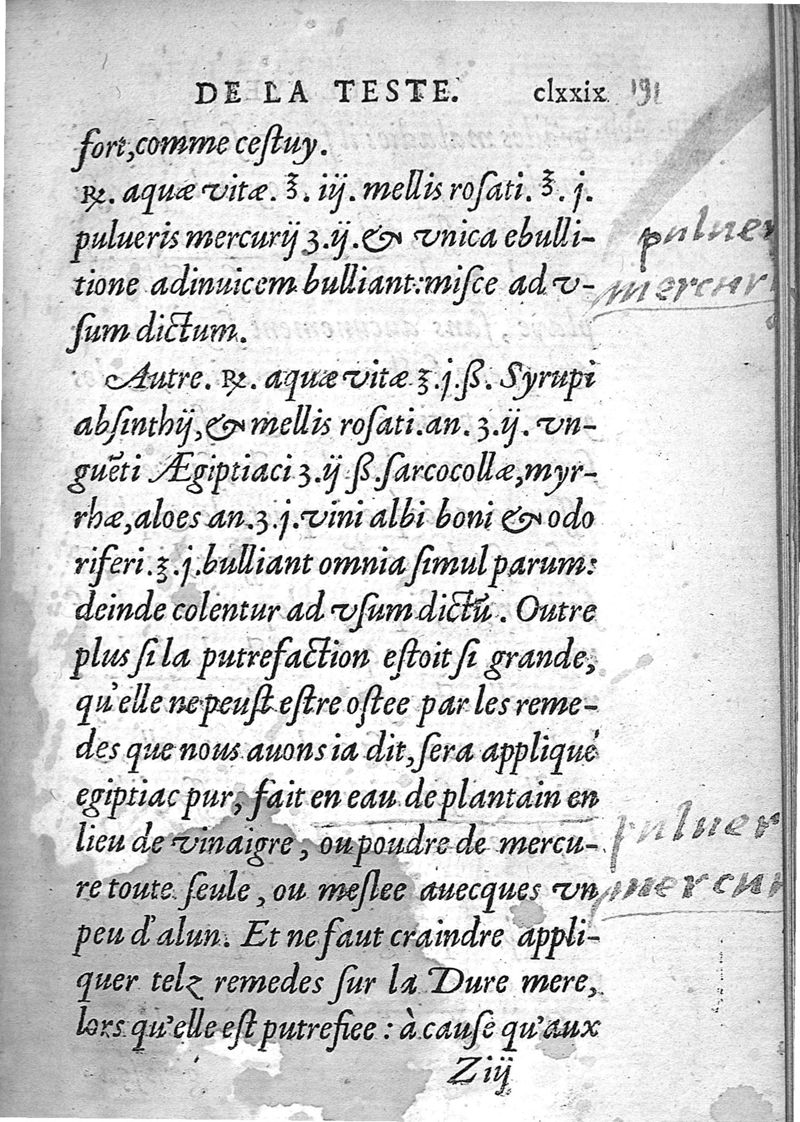 DE LA TESTE. clxxix 191
fort, comme cestuy.
℞. aquæ vitæ. ℥. iij. mellis rosati. ℥. j.
pulueris mercurij ʒ.ij. & vnica ebulli-
tione adinuicem bulliant: misce ad v-
sum dictum.
Autre. ℞. aquæ vitæ ℥.j.ß. Syrupi
absinthij, & mellis rosati. an. ʒ.ij. vn-
guẽti Ægiptiaci ʒ.ij ß. sarcocollæ, myr-
rhæ, aloes an. ʒ.j. vini albi boni & odo
riferi. ℥.j. bulliant omnia simul parum:
deinde colentur ad vsum dictũ. Outre
plus si la putrefaction estoit si grande,
qu'elle ne peust estre ostee par les reme-
des que nous auons ia dit, sera appliqué
egiptiac pur, fait en eau de plantain en
lieu de vinaigre, ou poudre de mercu-
re toute seule, ou meslee auecques vn
peu d'alun. Et ne faut craindre appli-
quer telz remedes sur la Dure mere,
lors qu'elle est putrefiee : à cause qu'aux
Z iij
puluer
mercur
puluer
mercur